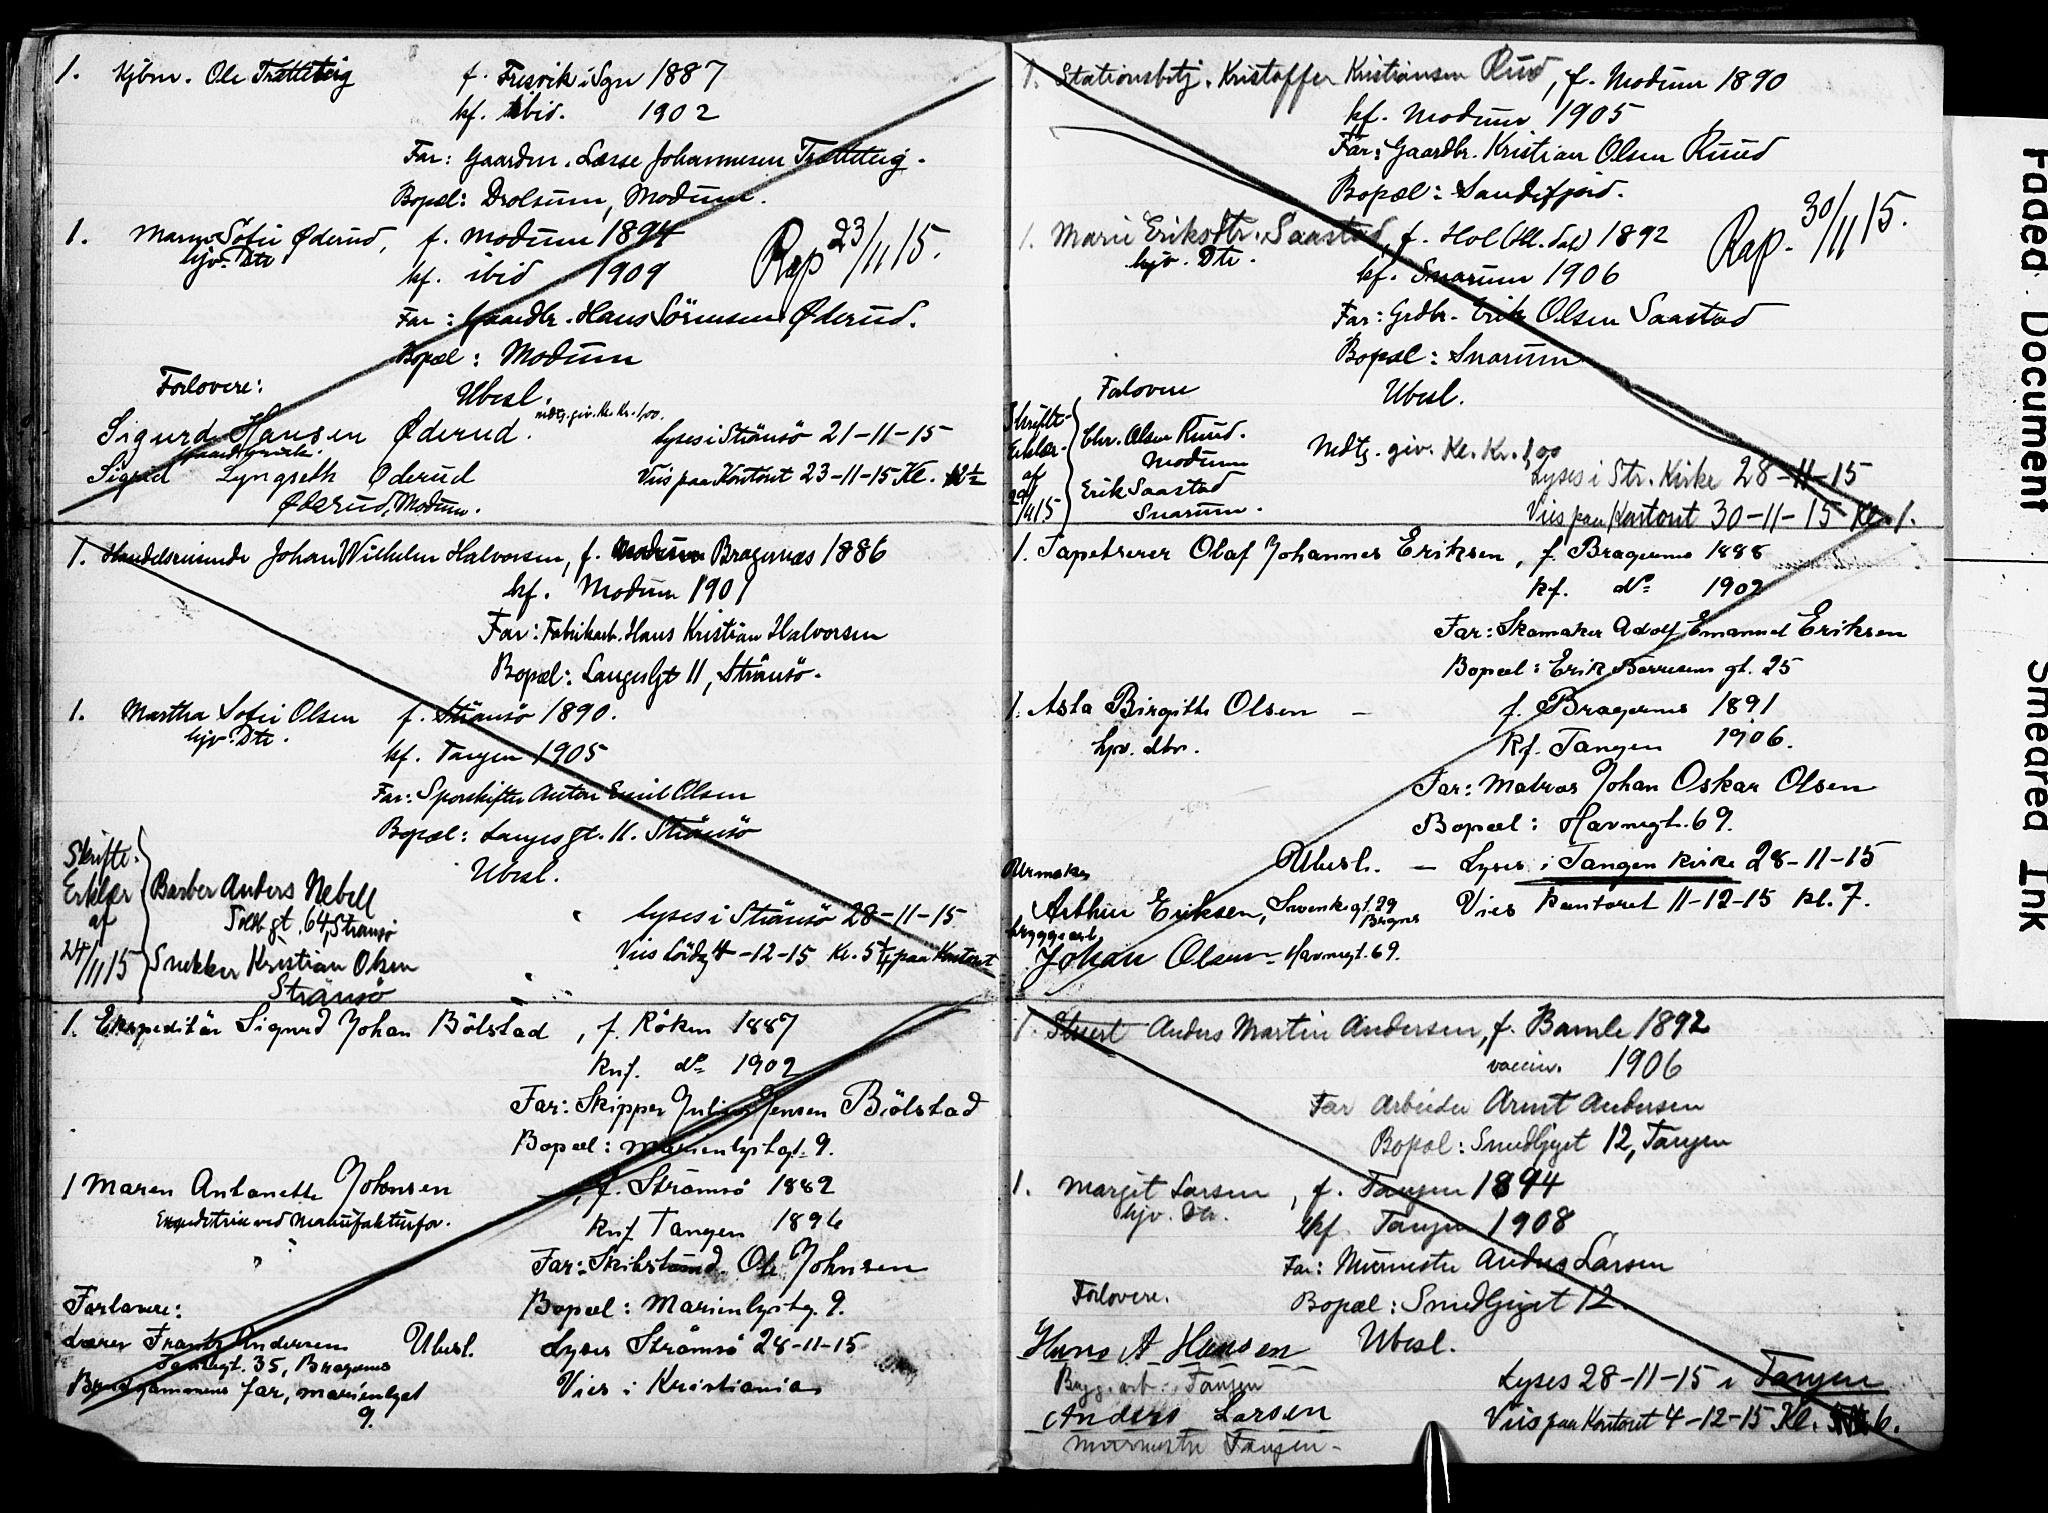 1. Kjbm. Ole Tretteteig f. Fresvik i Sgn 1887
kf. ibid. 1902
Far: Gaardm. Lasse Johannesen Tretteteig.
Bopæl: Drolsum, Modum.
1. Maren Sofie Øderud, f. Modum 1894
hjv. Dtr kf. ibid 1909
Rap 23/11 15.
Far: Gaardbr. Hans Sörensen Øderud.
Bopæl: Modum
Forlovere: Ubesl.
Medg. giv. Kl. Kr. 1,00.
Sigurd Hansen Øderud. Lyses i Strömsö 21-11-15
Sigurd Lyngseth Øderud Vies paa Kontoret 23-11-15 Kl. 12½
Øderud, Modum.
1. Handelsreisende Johan Wilhelm Halvorsen, f. Modum Bragernæs 1886
kf. Modum 1901
Far: Fabrikarb. Hans Kristian Halvorsen
Bopæl: Langesgt 11, Strömsö.
1. Martha Sofie Olsen f. Strömsö 1890.
hjv. Dtr.
kf. Tangen 1905
Far: Sporskifter Anton Emil Olsen
Bopæl: Langes gt. 11. Strömsö
Ubesl.
Skriftl.
Erklær
af
24/11 15
Barber Anders Nebell
Toldb. gt. 64, Strömsö
Snekker Kristian Olsen
Strömsö
Lyses i Strömsö 28-11-15
Vies Lördg 4-12-15 Kl. 5¼ paa Kontoret
1. Ekspeditör Sigurd Johan Bölstad, f. Röken 1887
Knf. do 1902
Far: Skipper Julius Jensen Bölstad
Bopæl: Marienlystgt. 9.
1 Maren Antonette Johnsen, f. Strömsö 1882
Expeditrise ved Manufakturfor. Knf Tangen 1896
Far: Skibstømd. Ole Johnsen
Forlovere: Bopæl: Marienlystg. 9.
Lærer Frantz Andersen Ubesl. Lyses Strömsö 28-11-15
Tomtegt. 35, Bragernes
Brudgommens far, Marienlyst Vies i Kristiania
9.
1. Stationsbetj. Kristoffer Kristiansen Rud, f. Modum 1890
kf. Modum 1905
Far: Gaardbr. Kristian Olsen Ruud
Bopæl: Sandefjord.
1. Marie Eriksdtr. Saastad, f. Hol (Hl. dal) 1892
hjv. Dtr. kf. Snarum 1906
Rap. 30/11 15.
Far: Grdbr. Erik Olsen Saastad
Bopæl: Snarum
Forlovere Ubesl.
Skriftl.
Erklær.
af
29/11 15
Chr. Olsen Ruud.
Modum
Erik Saastad
Snarum.
Medtg. giv. Kl. Kr. 1,00
Lyses i Str. Kirke 28-11-15
Vies paa Kontoret 30-11-15 Kl. 1.
1. Tapetserer Olaf Johannes Eriksen, f. Bragernes 1888
kf. do 1902
Far: Skomaker Adolf Emanuel Eriksen
Bopæl: Erik Börresens gt. 25
1. Asta Birgithe Olsen - f. Bragernes 1891
hjv. dtr. Kf. Tangen 1906.
Far: Matros Johan Oskar Olsen
Bopæl: Havnegt. 69.
Ubesl. - Lyses i Tangen kirke 28-11-15
Urmaker
Arthur Eriksen, Svenskegt. 29 Brgnes Vies Kontoret 11-12-15 Kl. 7.
bryggearb.
Johan Olsen - Havnegt. 69.
1. Stuert Anders Martin Andersen, f. Bamle 1892
vaccin. 1906
Far Arbeider Arnt Andersen
Bopæl: Smedbjget 12, Tangen
1. Margit Larsen, f. Tangen 1894
hjv. Dtr. kf Tangen 1908
Far: Murmester Anders Larsen
Forlovere. Bopæl: Smedbjget 12.
Hans A Hansen Ubesl.
Brygg. arb. Tangen Lyses 28-11-15 i Tangen
Anders Larsen Vies paa Kontoret 4-12-15 Kl. 6.
murmester Tangen.
Faded Document Smeared Ink